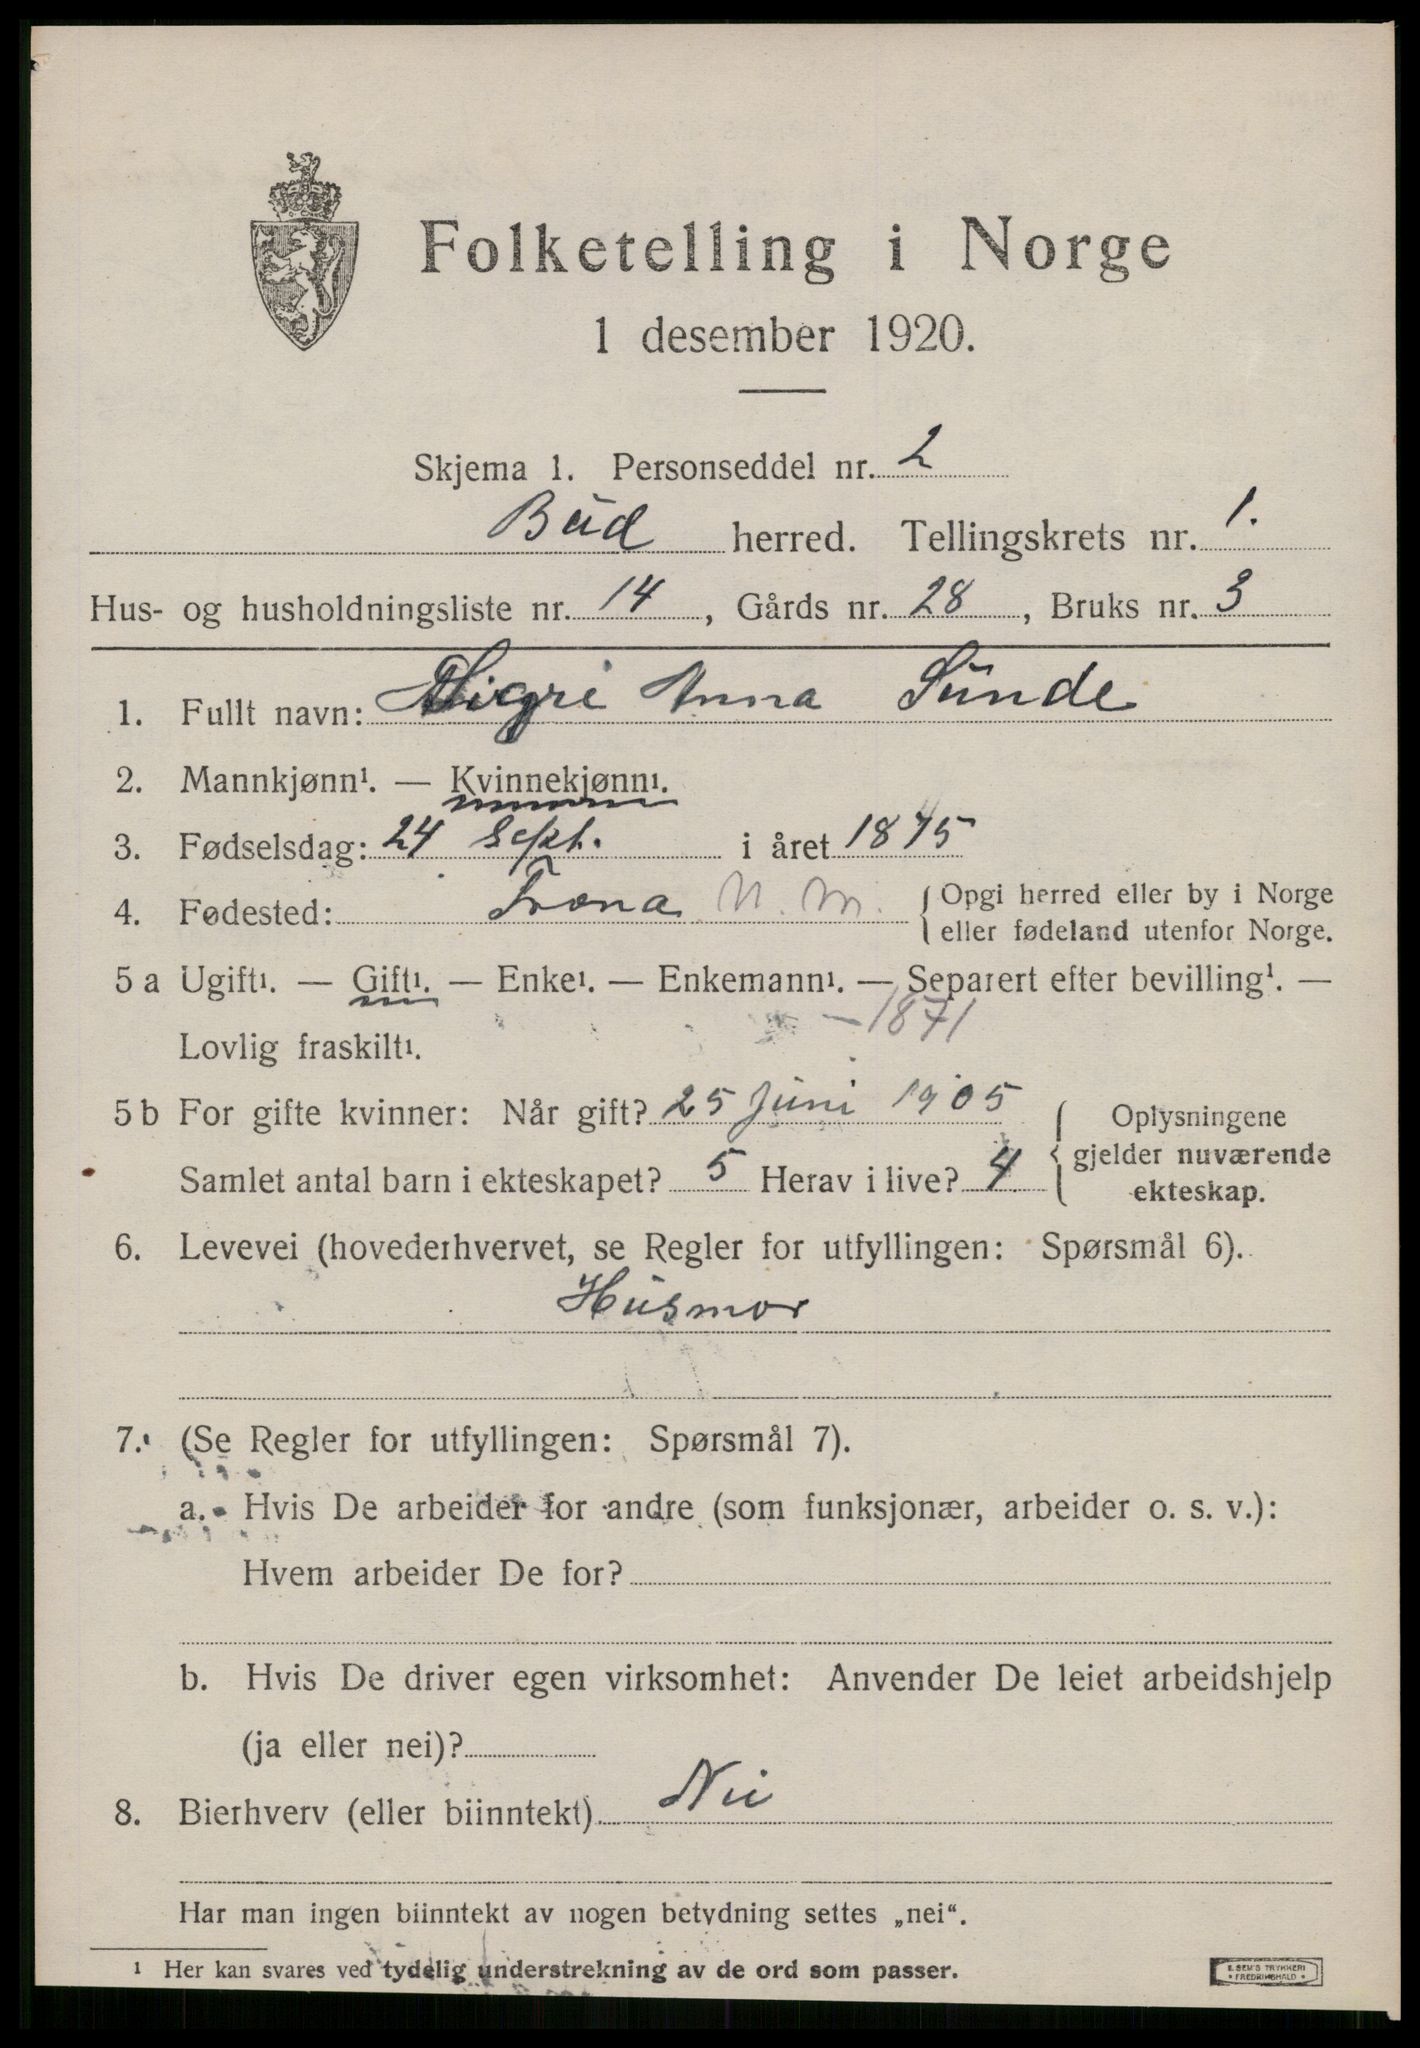 Folketelling i Norge
1 desember 1920.
Skjema 1. Personseddel nr. 2
Bud herred. Tellingskrets nr. 1.
Hus- og husholdningsliste nr. 14, Gårds nr. 28, Bruks nr. 3
1. Fullt navn: Sigri Anna Sunde
2. Mannkjønn¹. — Kvinnekjønn¹.
3. Fødselsdag: 24 Sept. i året 1875
4. Fødested: Fræna N. M. {Opgi herred eller by i Norge
eller fødeland utenfor Norge.
5 a Ugift¹. — Gift¹. — Enke¹. — Enkemann¹. — Separert efter bevilling¹. —
— 1871
Lovlig fraskilt¹.
5 b For gifte kvinner: Når gift? 25 juni 1905
Samlet antal barn i ekteskapet? 5 Herav i live? 4
{Oplysningene
gjelder nuværende
ekteskap.
6. Levevei (hovederhvervet, se Regler for utfyllingen: Spørsmål 6).
Husmor
7. (Se Regler for utfyllingen: Spørsmål 7).
a. Hvis De arbeider for andre (som funksjonær, arbeider o. s. v.):
Hvem arbeider De for?
b. Hvis De driver egen virksomhet: Anvender De leiet arbeidshjelp
(ja eller nei)?
8. Bierhverv (eller biinntekt) Nei
Har man ingen biinntekt av nogen betydning settes „nei“.
¹ Her kan svares ved tydelig understrekning av de ord som passer.
E. SEM'S TRYKKERI
• FREDRIKSHALD •